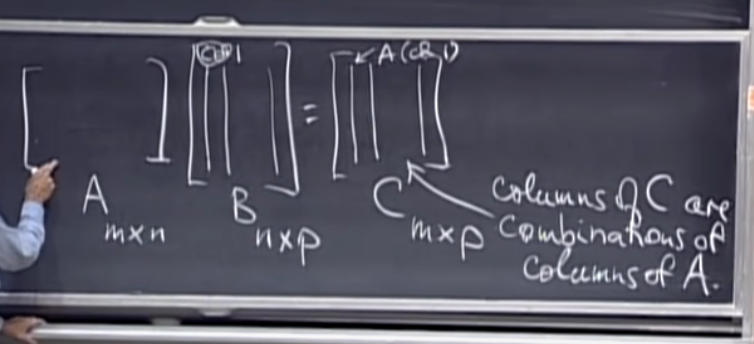 [ ] [ col 1 ] = [ ↙ A(col 1) ]
A B C
m×n n×p m×p
columns of C are
combinations of
columns of A.